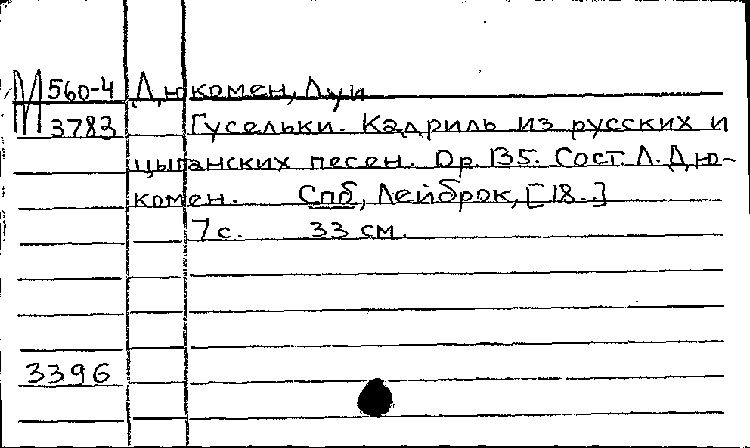 М 560-4 Дюкомен, Луи
3783 Гусельки. Кадриль из русских и
цыганских песен. Op. 135. Сост. Л. Дю-
комен. Спб, Лейброк, [18..]
7 с. 33 см.
3396